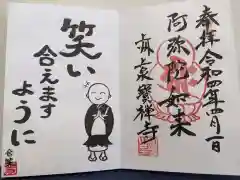 奉拝 令和四年四月一日
阿弥陀如来
禅寺
笑い
合えます
ように